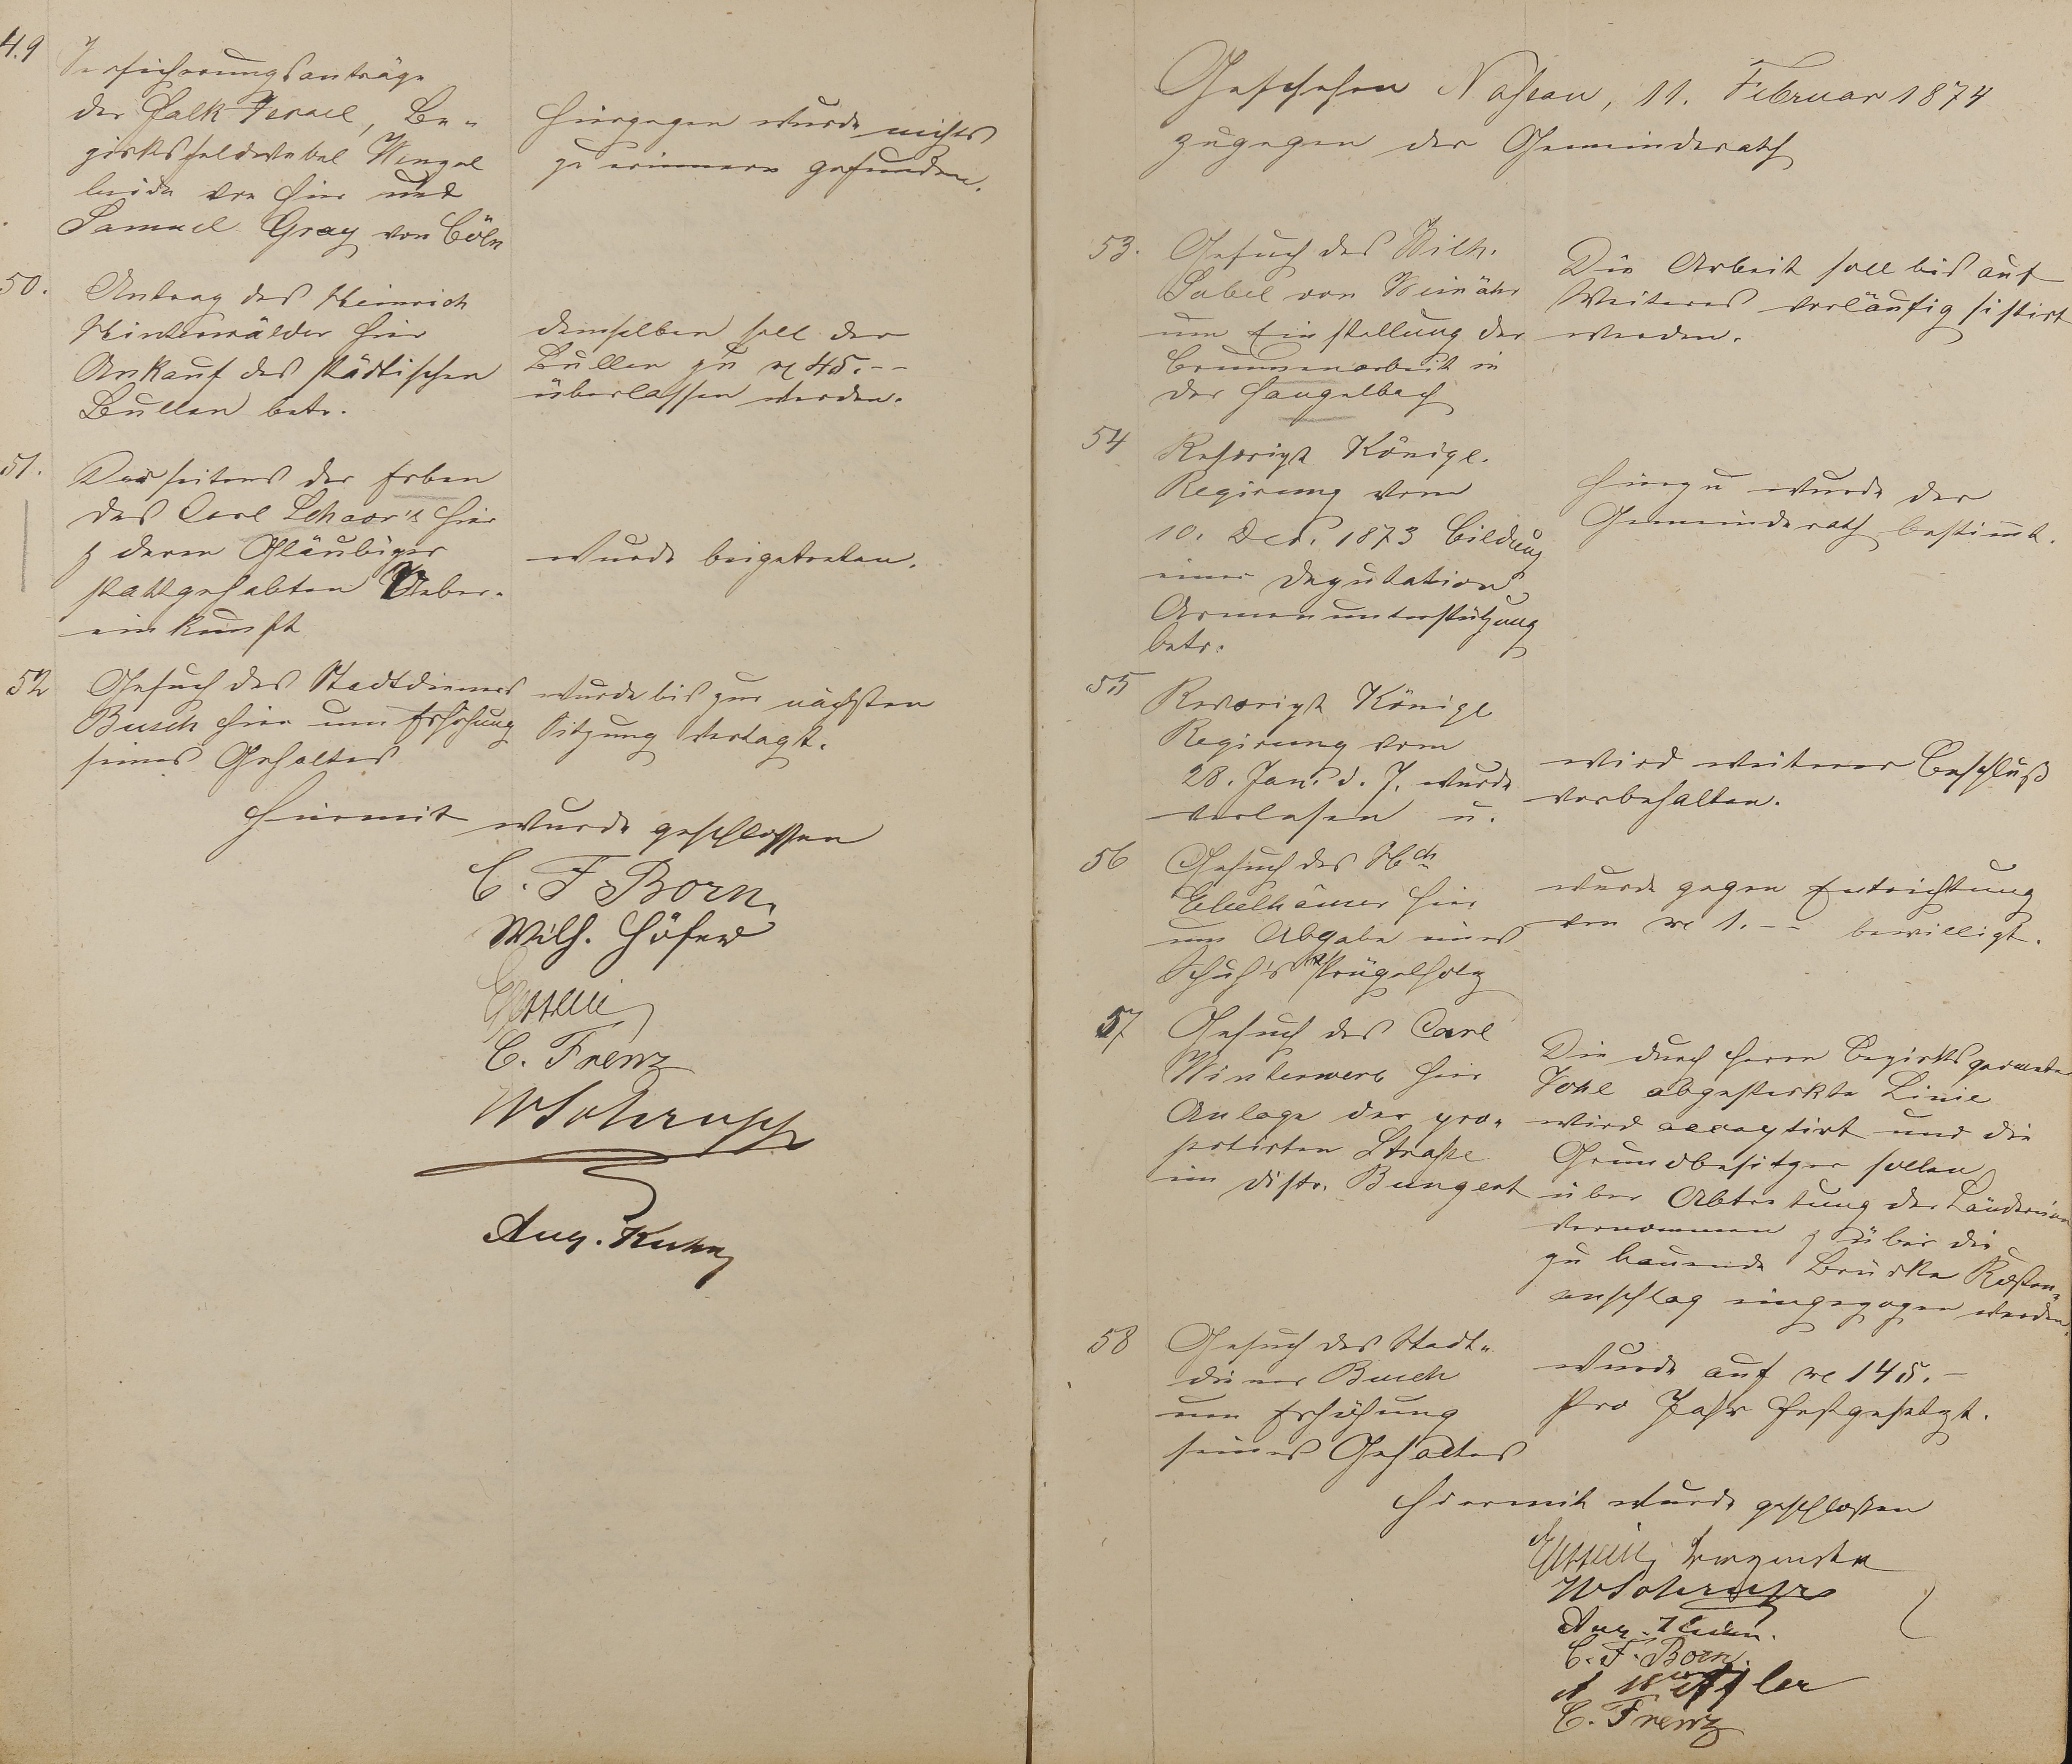 49
Versicherungsanträge
der Falk Israel, Be-
zirksfeldwebel Wenzel
beide von hier und
Samuel Gray von Cöln
hiergegen wurde nichts
zu erinnern gefunden.
50.
Antrag des Heinrich
Hinterwälder hier
Ankauf des städtischen
Bullen betr.
demselben soll der
Bullen zu 45.--
überlassen werden.
51.
Der seitens der Erben
des Carl Schaar's hier
& deren Gläubiger
stattgehabten Ueber-
einkunft
wurde beigetreten.
52
Gesuch des Stadtdieners
Busch hier um Erhöhung
seines Gehaltes
wurde bis zur nächsten
Sitzung vertagt.
Hiermit wurde geschlossen
C. F. Born.
Wilh. Höfer
C. Frenz
Aug. Kuhn
Geschehen Nassau, 11. Februar 1874
zugegen der Gemeinderath
53.
Gesuch des Wilh.
Sabel von Weinähr
um Einstellung der
Brunnenarbeit in
der Haugelbach
Die Arbeit soll bis auf
Weiteres vorläufig sistirt
werden.
54
Rescript Königl.
Regirung vom
10. Dec. 1873 Bildung
einer Deputation
Armenunterstützung
betr.
hierzu wurde der
Gemeinderath bestimt.
55
Rescript Königl
Regirung vom
28. Jan. d. J. wurde
verlesen u.
wird weiterer Beschluß
vorbehalten.
56
Gesuch des Hch
Edelhäuser hier
um Abgabe eines
Schuh's Prügelholz
wurde gegen Entrichtung
von 1.-- bewilligt.
57
Gesuch des Carl
Winterwerb hier
Anlage der pro-
jectirten Straße
im Distr. Bungert
Die durch Herrn Bezirksgeometer
Vohl abgesteckte Linie
wird acceptirt und die
Grundbesitzer sollen
über Abtretung der Ländereien
vernommen & über die
zu bauende Brücke Kosten-
anschlag eingezogen werden.
58
Gesuch des Stadt-
diener Busch
um Erhöhung
seines Gehaltes
wurde auf 145.-
pro Jahr festgesetzt.
Hiermit wurde geschlossen
Aug. Kuhn.
C. F. Born.
C. Frenz